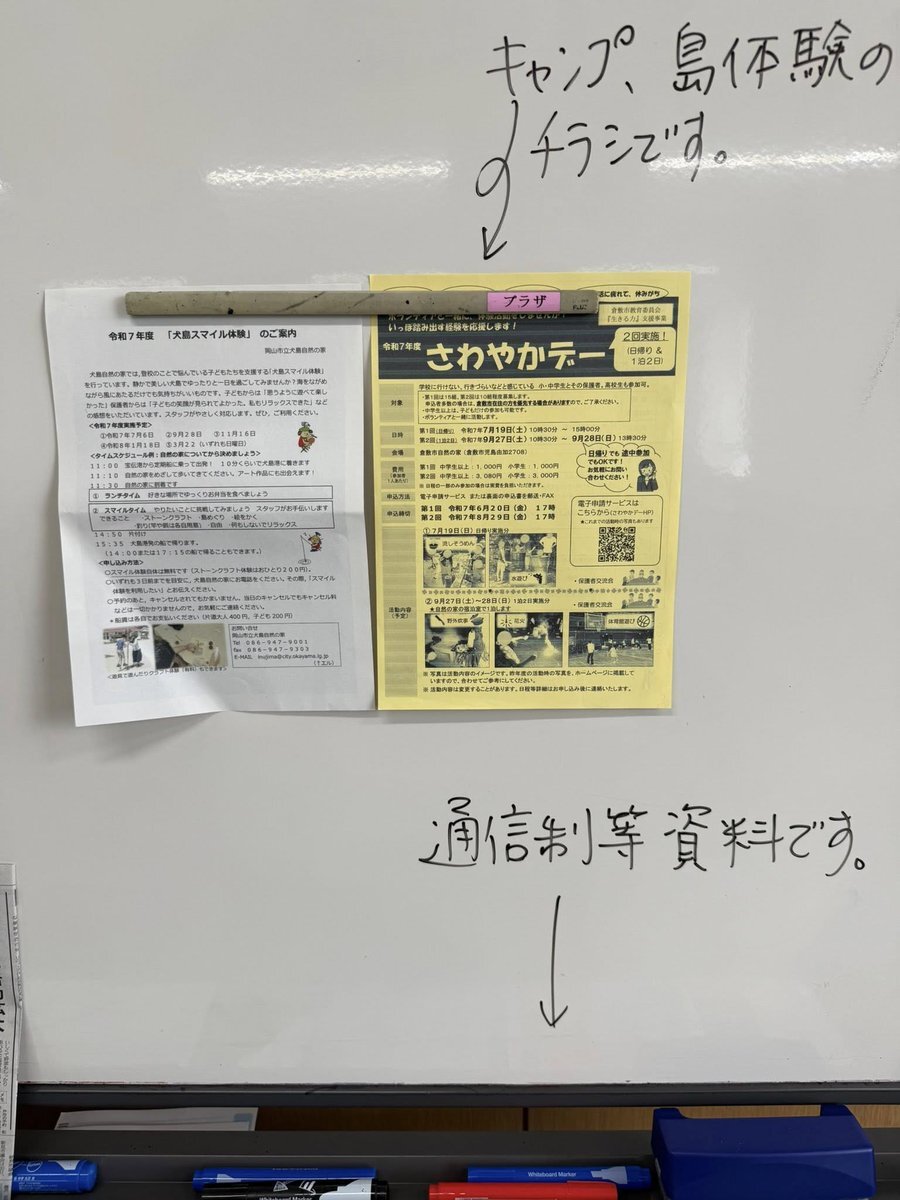 キャンプ、島体験の
チラシです。
プラザ
令和7年度 「犬島スマイル体験」 のご案内
岡山市立犬島自然の家
犬島自然の家では、登校のことで悩んでいる子どもたちを支援する「犬島スマイル体験」
を行っています。静かで美しい犬島でゆったりと一日を過ごしてみませんか?海をながめ
ながら風にあたるだけでも気持ちがいいものです。子どもからは「思うように遊べて楽し
かった」保護者からは「子どもの笑顔が見られてよかった。私もリラックスできた」など
の感想をいただいています。スタッフがやさしく対応します。ぜひ、ご利用ください。
<令和7年度実施予定>
①令和7年7月6日 ②9月28日 ③11月16日
④令和8年1月18日 ⑤3月22日(いずれも日曜日)
<タイムスケジュール例:自然の家についてから決めましょう>
11:00 宝伝港から定期船に乗って出発! 10分くらいで犬島港に着きます
11:10 自然の家をめざして歩いてきてください。アート作品にも出会えます!
11:30 自然の家に到着です
① ランチタイム 好きな場所でゆっくりお弁当を食べましょう
② スマイルタイム やりたいことに挑戦してみましょう スタッフがお手伝いします
できること ・ストーンクラフト ・島めぐり ・絵をかく
・釣り(竿や餌は各自用意) ・自由 ・何もしないでリラックス
14:50 片付け
15:35 犬島港発の船で帰ります。
(14:00または17:15の船で帰ることもできます。)
<申し込み方法>
○スマイル体験自体は無料です(ストーンクラフト体験はおひとり200円)。
○いずれも3日前までを目安に、犬島自然の家にお電話をください。その際、「スマイル
体験を利用したい」とお伝えください。
○予約のあと、キャンセルされてもかまいません。当日のキャンセルでもキャンセル料
などは一切かかりませんので、お気軽にご連絡ください。
*船賃は各自でお支払いください(片道大人400円、子ども200円)
お問い合せ
岡山市立犬島自然の家
Tel 086-947-9001
fax 086-947-9302
E-MAIL inujima@city.okayama.lg.jp
(↑エル)
<遊具で遊んだりクラフト体験(有料)もできます>
に疲れて、休みがち
ボランティアと一緒に、体験活動をしませんか?
いっぽ踏み出す経験を応援します!
倉敷市教育委員会
『生きる力』支援事業
令和7年度
さわやかデー
2回実施!
(日帰り&
1泊2日)
対象
学校に行けない、行きづらいなどと感じている 小・中学生とその保護者。高校生も参加可。
・第1回は15組、第2回は10組程度募集します。
申込者多数の場合は、倉敷市在住の方を優先する場合がありますので、ご了承ください。
・中学生以上は、子どもだけの参加も可能です。
・ボランティアと一緒に活動します。
日時
第1回(日帰り) 令和7年7月19日(土)10時30分 ~ 15時00分
第2回(1泊2日) 令和7年9月27日(土)10時30分 ~ 9月28日(日)13時30分
会場
倉敷市自然の家(倉敷市児島由加2708)
費用
(参加者1人あたり)
第1回 中学生以上:1,000円 小学生:1,000円
第2回 中学生以上:3,080円 小学生:3,000円
※日程の一部のみ参加の場合は実費を負担いただきます。
日帰りでも途中参加
でもOKです!
お気軽にお問い
合わせください!
申込方法
電子申請サービス または裏面の申込書を郵送・FAX
申込締切
第1回 令和7年6月20日(金) 17時
第2回 令和7年8月29日(金) 17時
電子申請サービスは
こちらから(さわやかデーHP)
★これまでの活動時の写真もあります
活動内容
(予定)
①7月19日(日)日帰り実施分
流しそうめん
水遊び
・保護者交流会
②9月27日(土)~28日(日)1泊2日実施分
★自然の家の宿泊室で1泊します
・保護者交流会
野外炊事
花火
体育館遊び
※ 写真は活動内容のイメージです。昨年度の活動時の写真を、ホームページに掲載して
いますので、合わせてご参考にしてください。
※ 活動内容は変更することがあります。日程等詳細はお申し込み後に連絡いたします。
通信制等資料です。
Whiteboard Marker
Whiteboard Marker